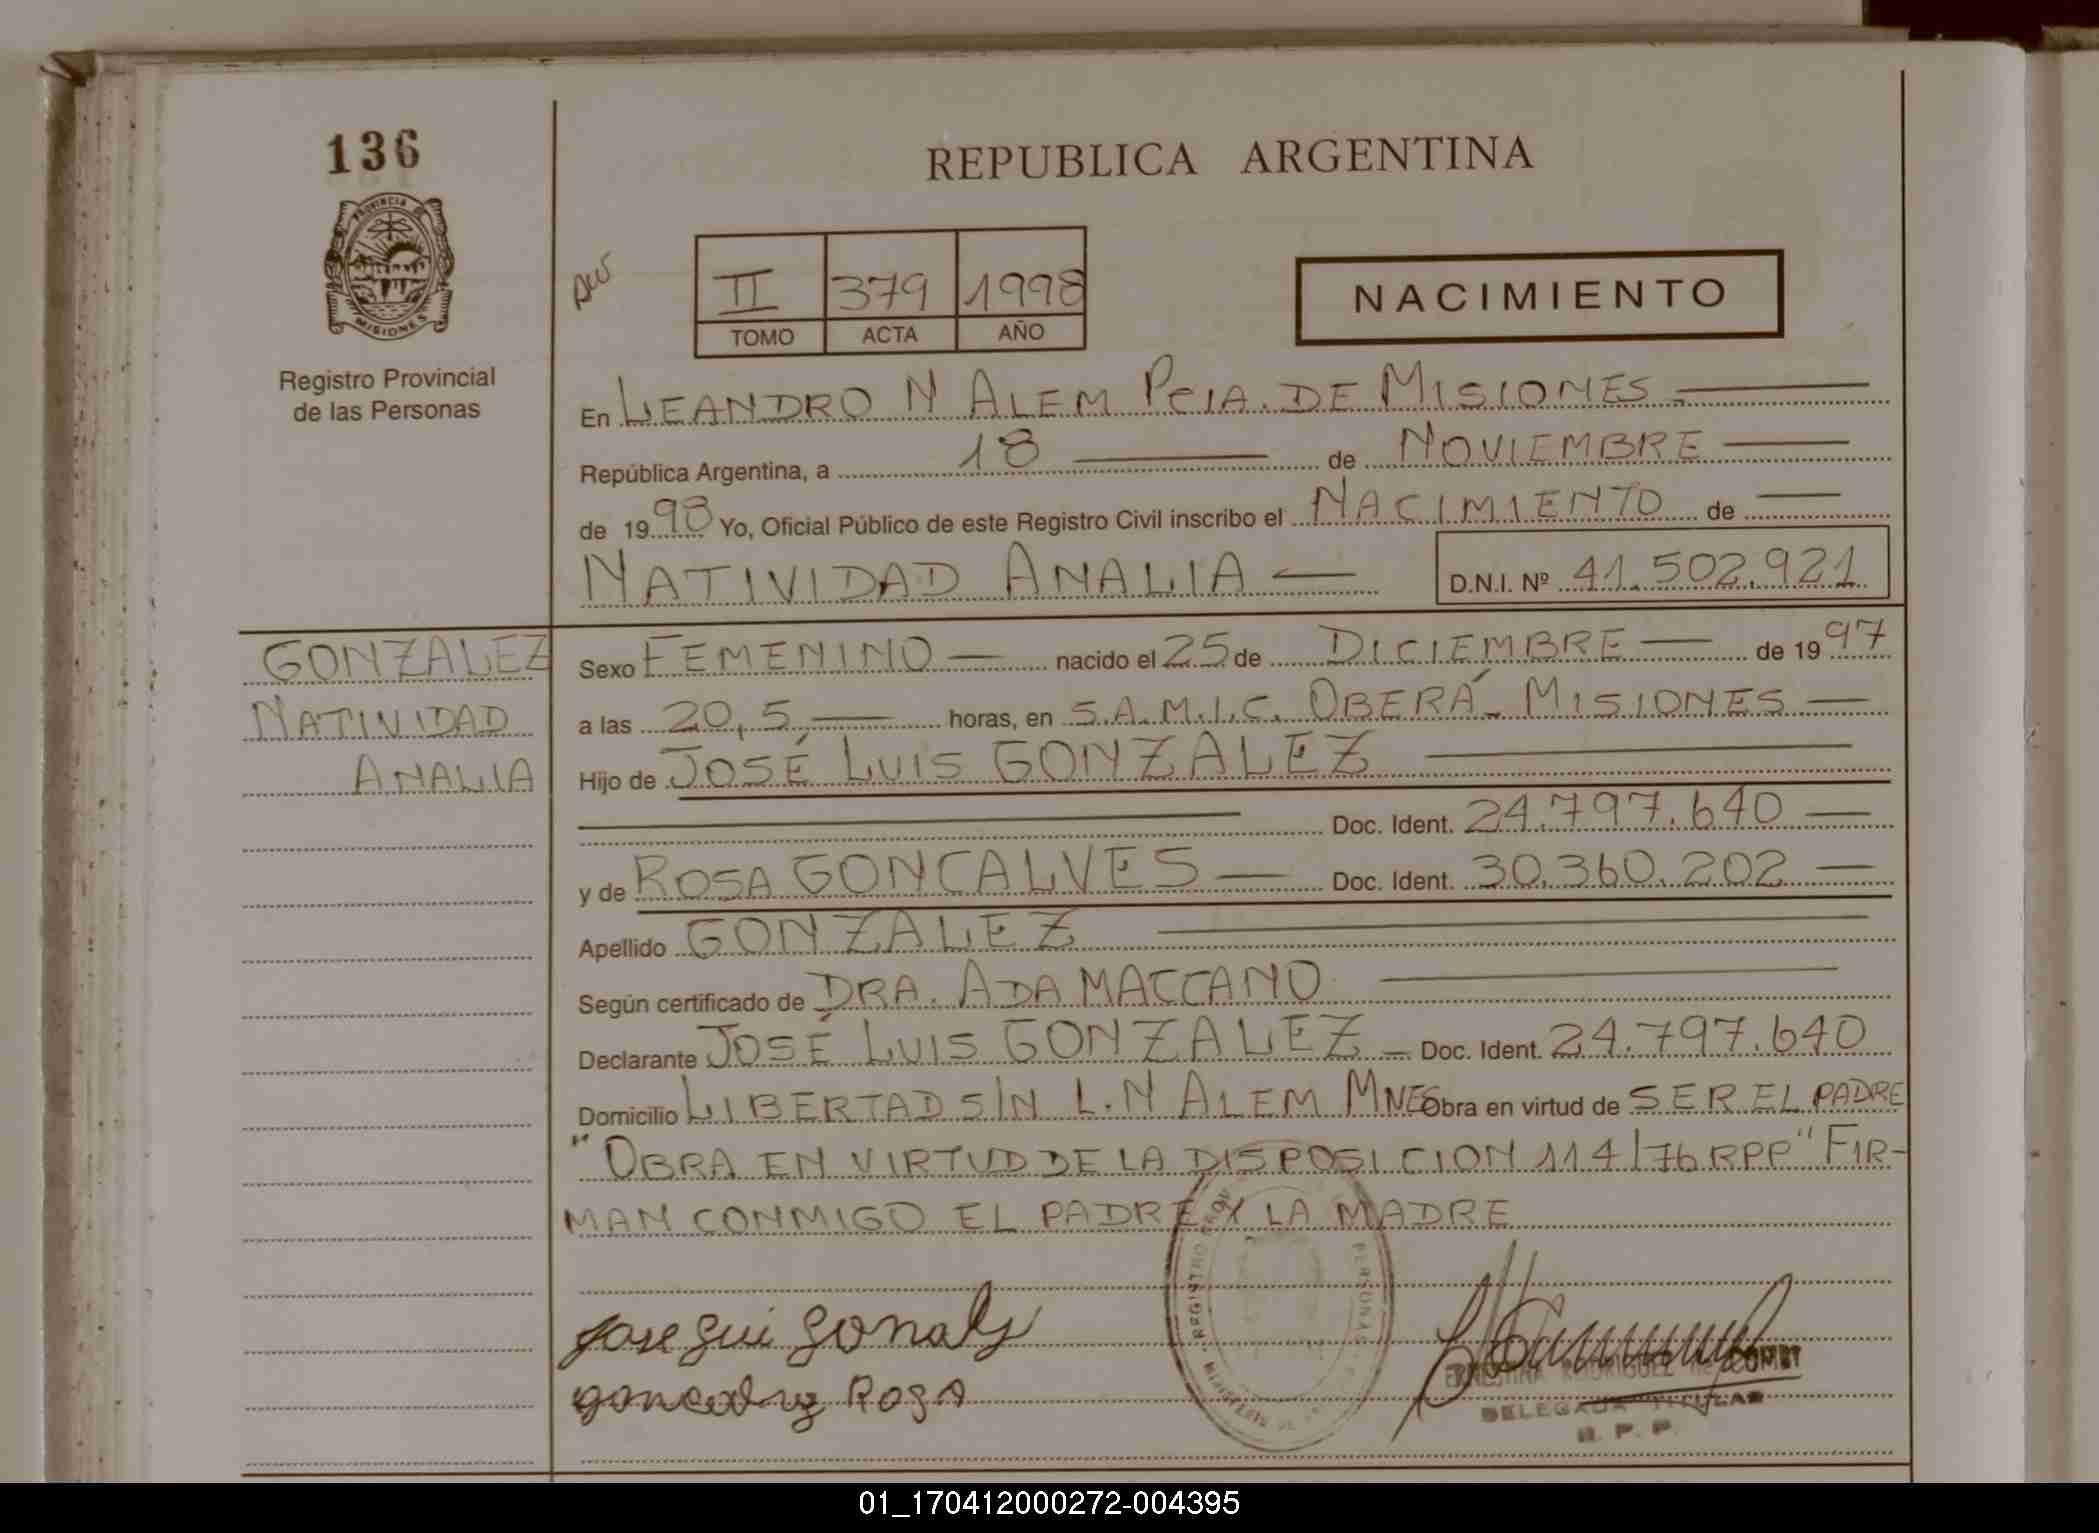 136
REPUBLICA ARGENTINA
PROVINCIA DE
MISIONES
II 379 1998
TOMO ACTA AÑO
NACIMIENTO
Registro Provincial
de las Personas
En LEANDRO N ALEM PCIA. DE MISIONES
República Argentina, a 18 de NOVIEMBRE
de 1998 Yo, Oficial Público de este Registro Civil inscribo el NACIMIENTO de
NATIVIDAD ANALIA D.N.I. Nº 41.502.921
GONZALEZ
NATIVIDAD
ANALIA
Sexo FEMENINO nacido el 25 de DICIEMBRE de 1997
a las 20,5 horas, en S.A.M.I.C. OBERÁ - MISIONES
Hijo de JOSÉ LUIS GONZALEZ
Doc. Ident. 24.797.640
y de ROSA GONCALVES Doc. Ident. 30.360.202
Apellido GONZALEZ
Según certificado de DRA. ADA MACCANO
Declarante JOSÉ LUIS GONZALEZ Doc. Ident. 24.797.640
Domicilio LIBERTAD S/N L.N ALEM MNES Obra en virtud de SER EL PADRE
"OBRA EN VIRTUD DE LA DISPOSICION 114/76 RPP" FIR-
MAN CONMIGO EL PADRE Y LA MADRE
REGISTRO PROV PERSONAS
Rosa
RODRIGUEZ
DELEGADA TITULAR
R. P. P.
01_170412000272-004395